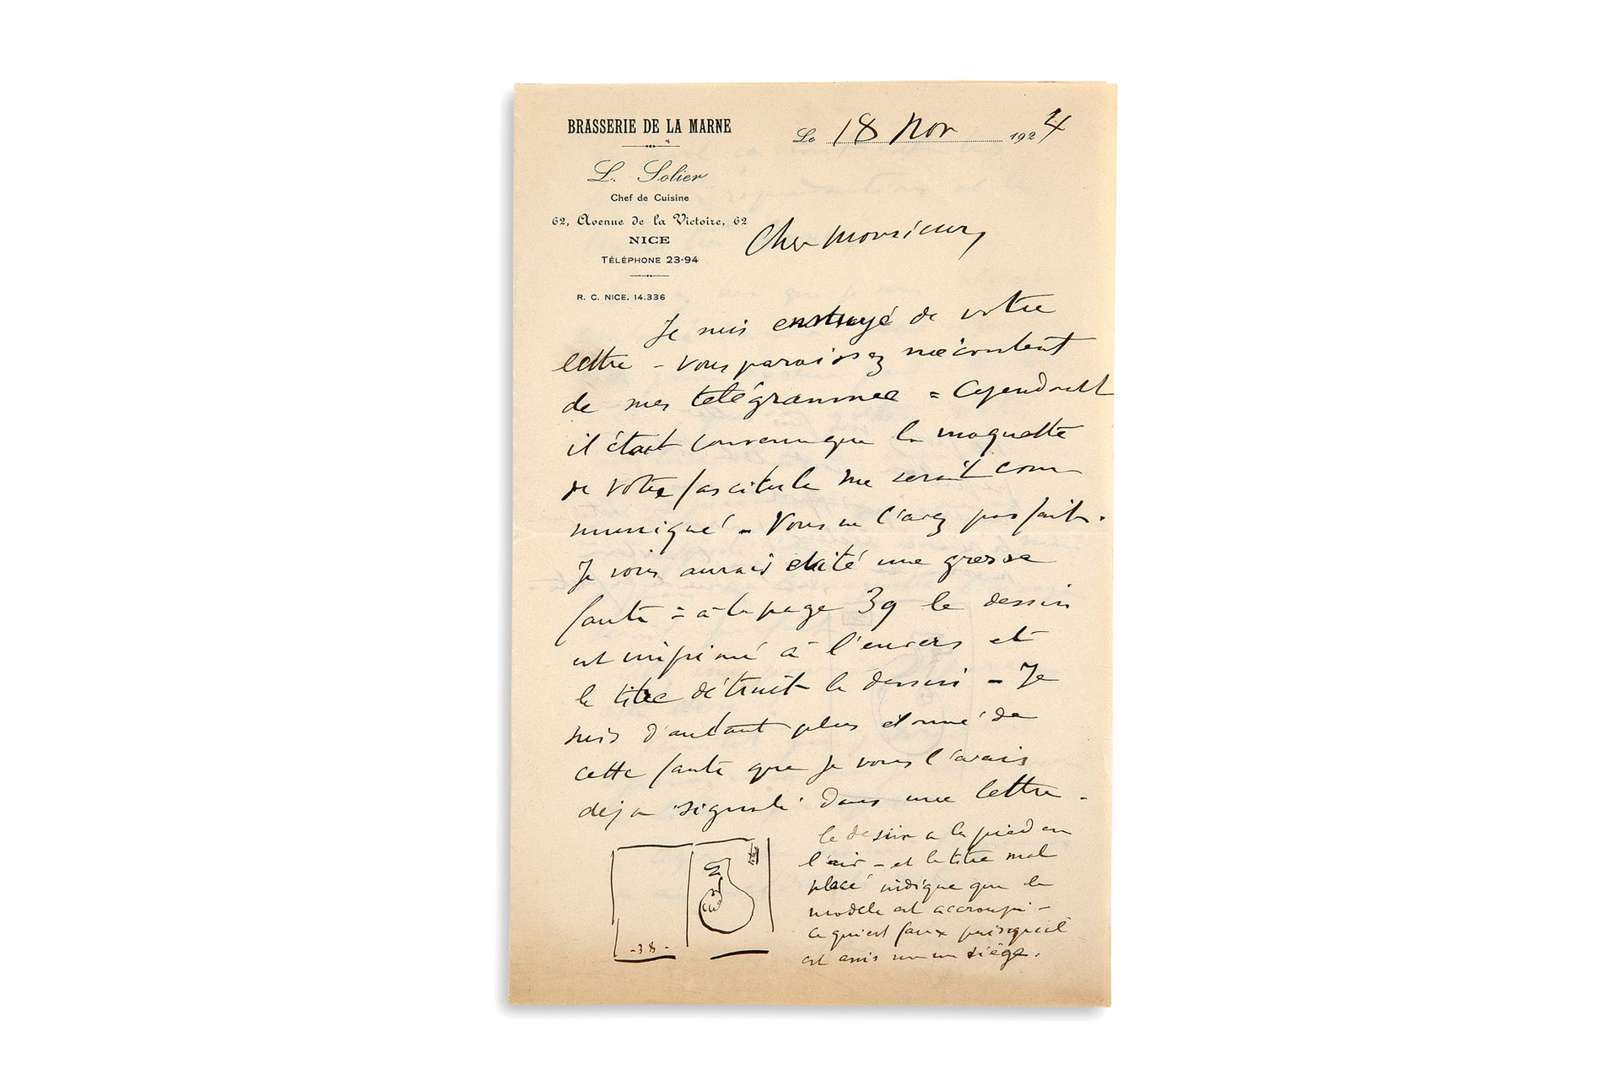 BRASSERIE DE LA MARNE
L. Solier
Chef de Cuisine
62, Avenue de la Victoire, 62
NICE
TÉLÉPHONE 23-94
R. C. NICE. 14.336
Le 18 Nov 1924
Cher Monsieur,
Je suis de votre
lettre - Vous paraissez mécontent
de mes télégrammes = Cependant
il était convenu que la maquette
de votre fascicule me serait com
muniqué - Vous ne l'avez pas fait.
Je vous aurais évité une grosse
faute = à la page 39 le dessin
est imprimé à l'envers et
le titre détruit le dessin - Je
suis d'autant plus étonné de
cette faute que je vous l'avais
déja signalé dans une lettre.
le dessin a le pied en
l'air - et le titre mal
placé indique que le
modèle est accroupi -
ce qui est faux puisqu'il
est assis sur un siège.
- 38 -